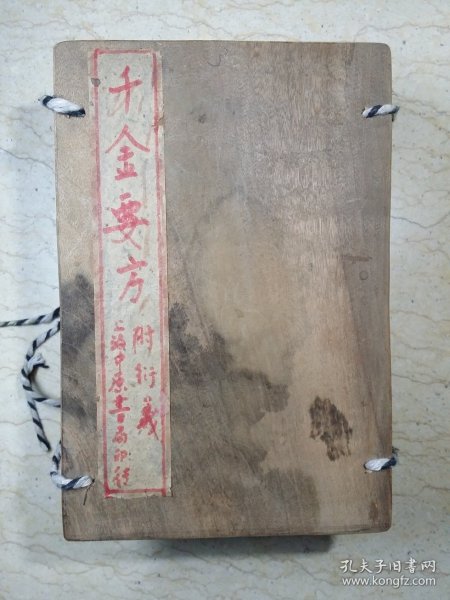 千金要方
附衍義
上海中原書局印
孔夫子旧书网
www.kongfz.com